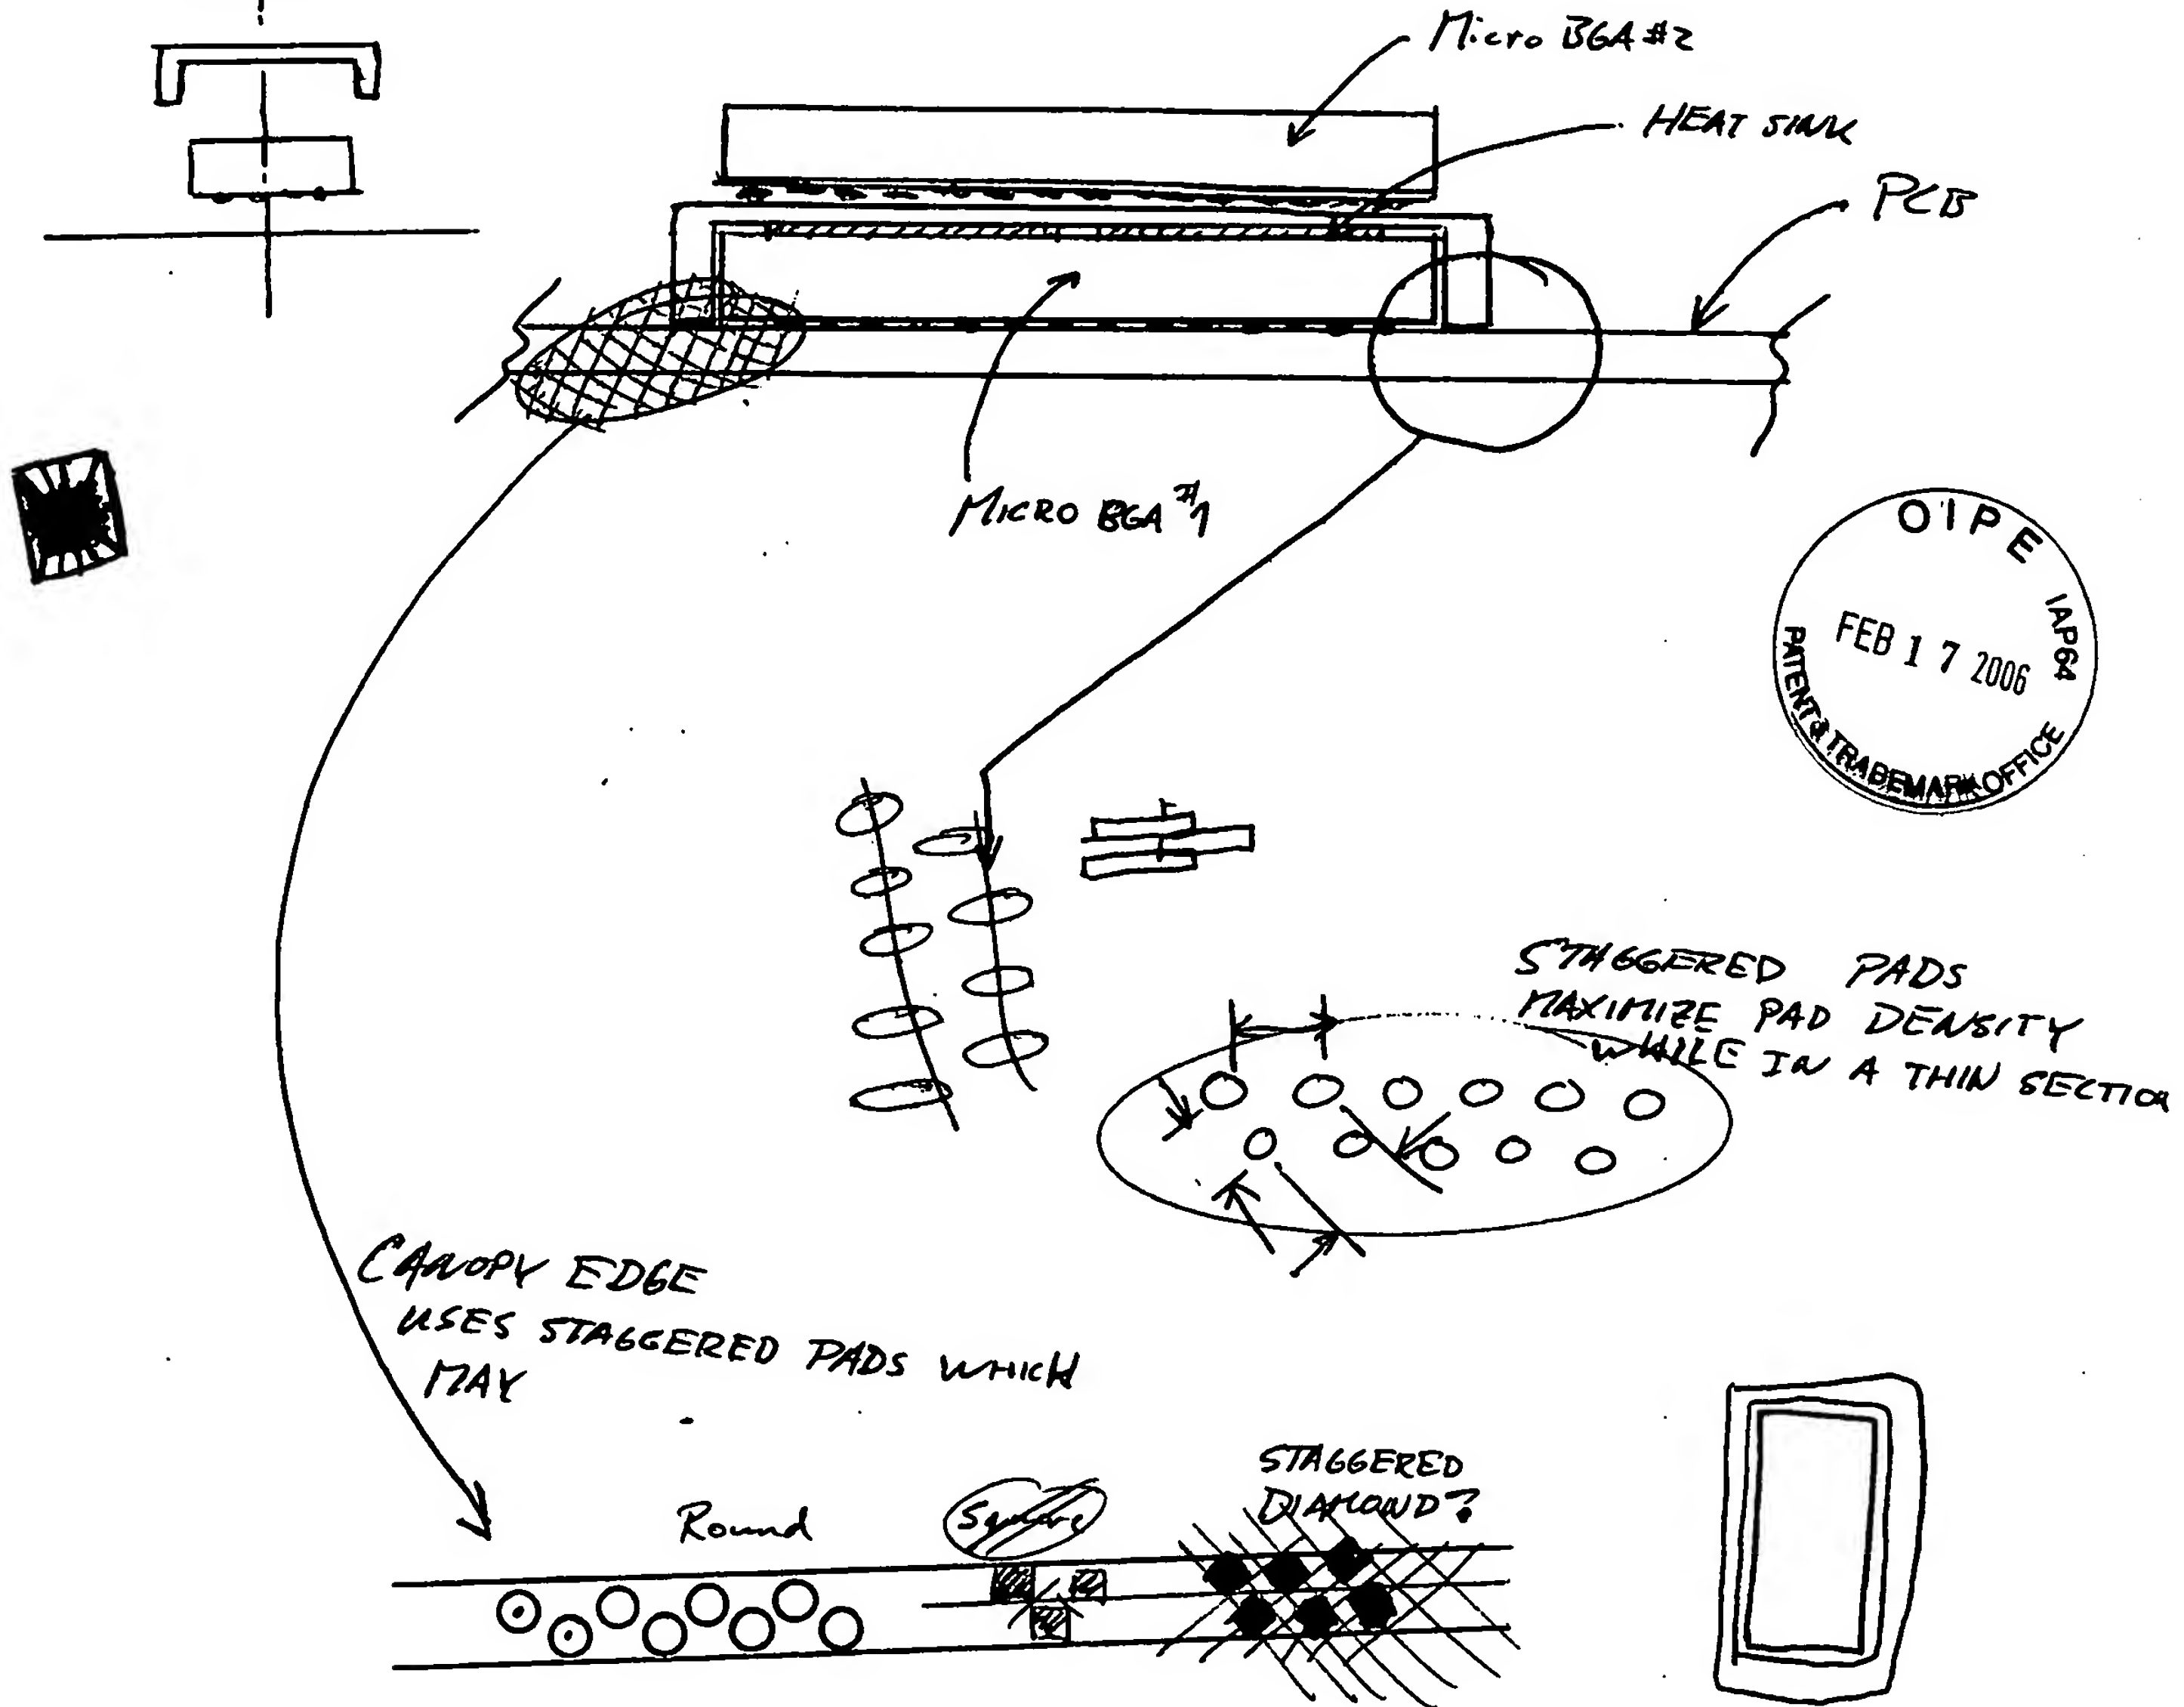 Micro BGA #2
HEAT SINK
PCB
MICRO BGA #1
OIPE IAP64
FEB 17 2006
PATENT & TRADEMARK OFFICE
STAGGERED PADS
MAXIMIZE PAD DENSITY
WHILE IN A THIN SECTION
CANOPY EDGE
USES STAGGERED PADS WHICH
MAY
Round
Square
STAGGERED
DIAMOND?